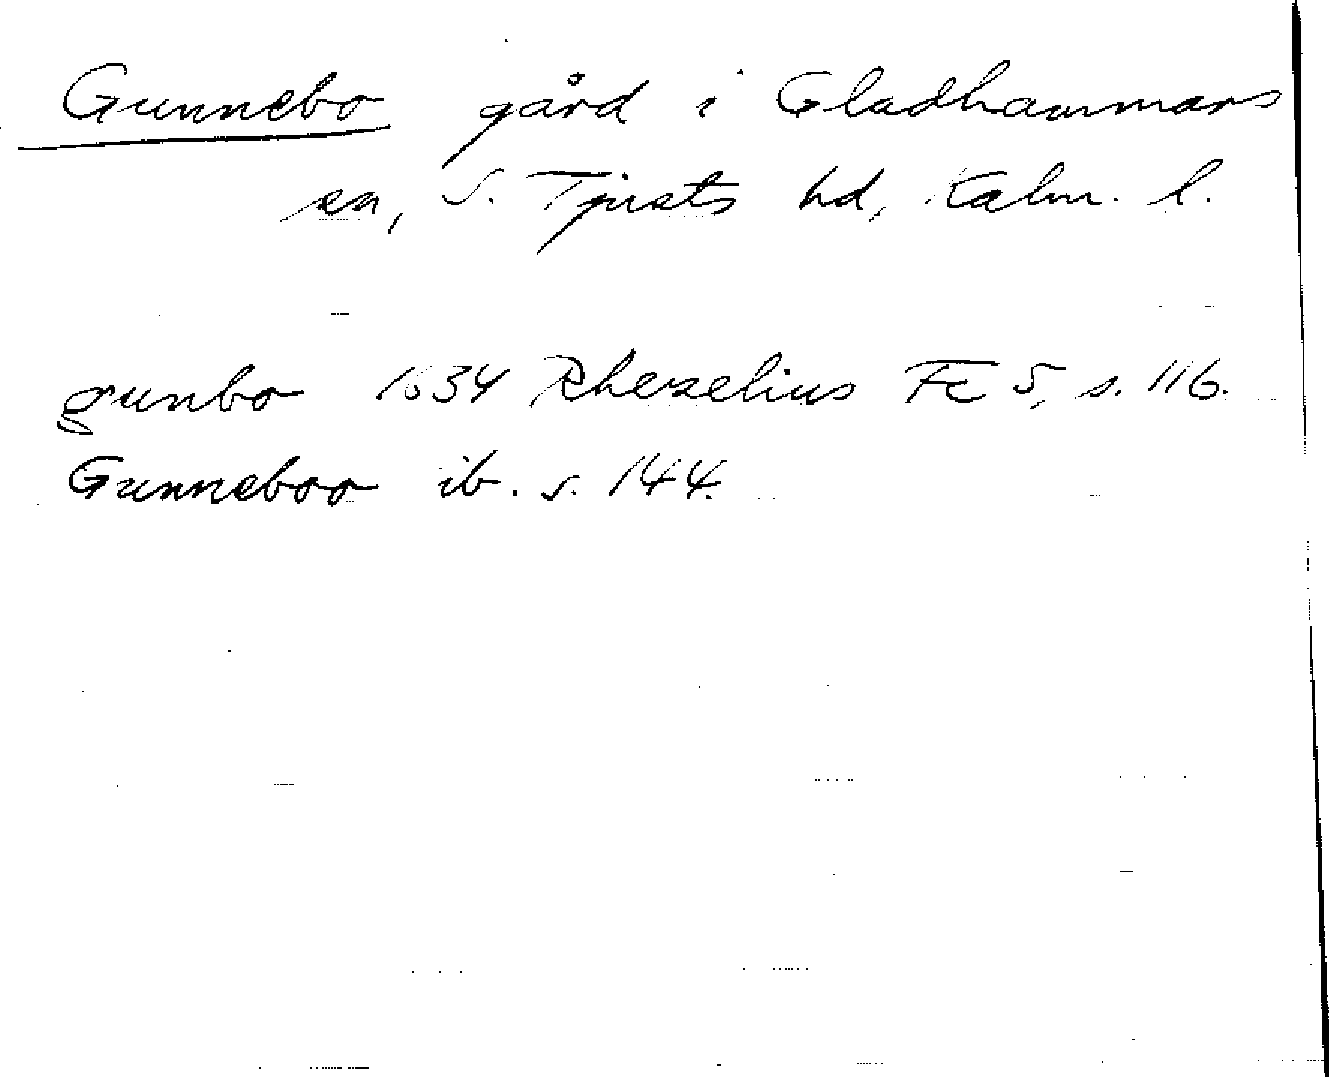 Gunnebo gård i Gladhammars
sn, S. Tjusts hd, Kalm. l.
gunbo 1634 Rhezelius Fc 5, s. 116.
Gunneboo ib. s. 144.